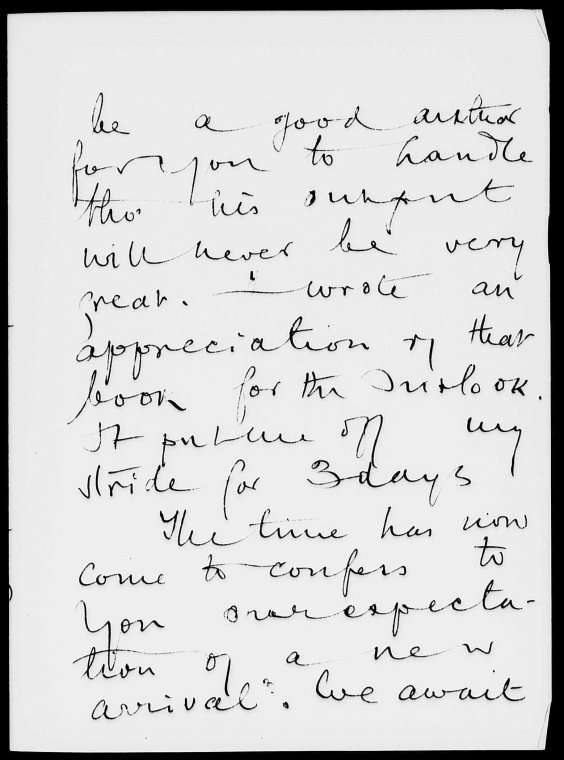 be a good author
for you to handle
tho' his output
will never be very
great. I wrote an
appreciation of that
book for the Outlook.
It put me off my
stride for 3 days
The time has now
come to confess to
you our expecta-
tion of a "new
arrival". We await